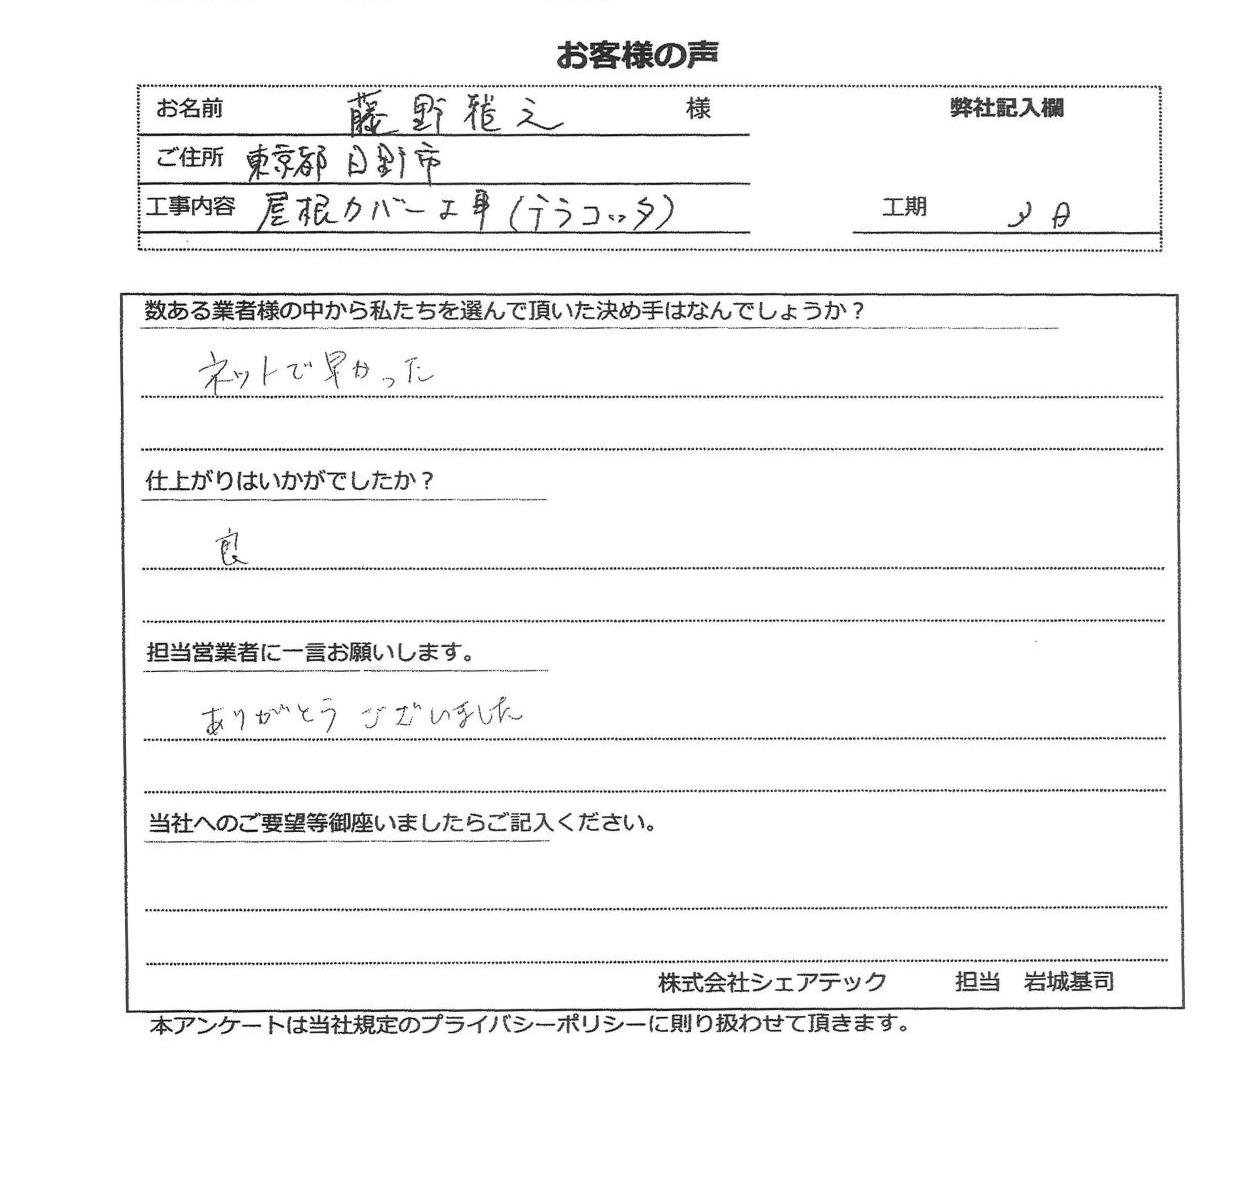 お客様の声
お名前 藤野雅之 様 弊社記入欄
ご住所 東京都日野市
工事内容 屋根カバー工事(テラコッタ) 工期 日
数ある業者様の中から私たちを選んで頂いた決め手はなんでしょうか？
ネットで早かった
仕上がりはいかがでしたか？
良
担当営業者に一言お願いします。
ありがとうございました
当社へのご要望等御座いましたらご記入ください。
株式会社シェアテック 担当 岩城基司
本アンケートは当社規定のプライバシーポリシーに則り扱わせて頂きます。